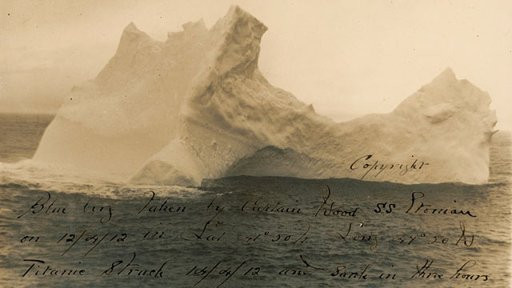 Copyright
Blue berg Taken by Captain Wood SS Etonian
on 12/4/12 in Lat 41°50 Long 49°50 N
Titanic Struck 14/4/12 and sank in three hours